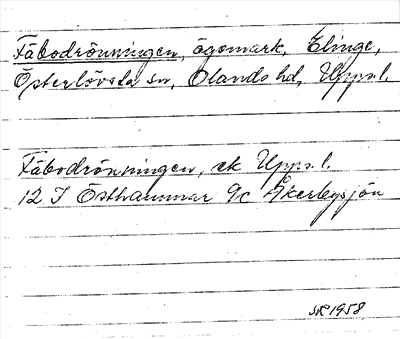 Fäbodrönningen, ägomark, Elinge,
Österlövsta sn, Olands hd, Uppsl.
Fäbodrönningen, ek Upps. l.
12 I Östhammar 9c Åkerbysjön
SR 1958